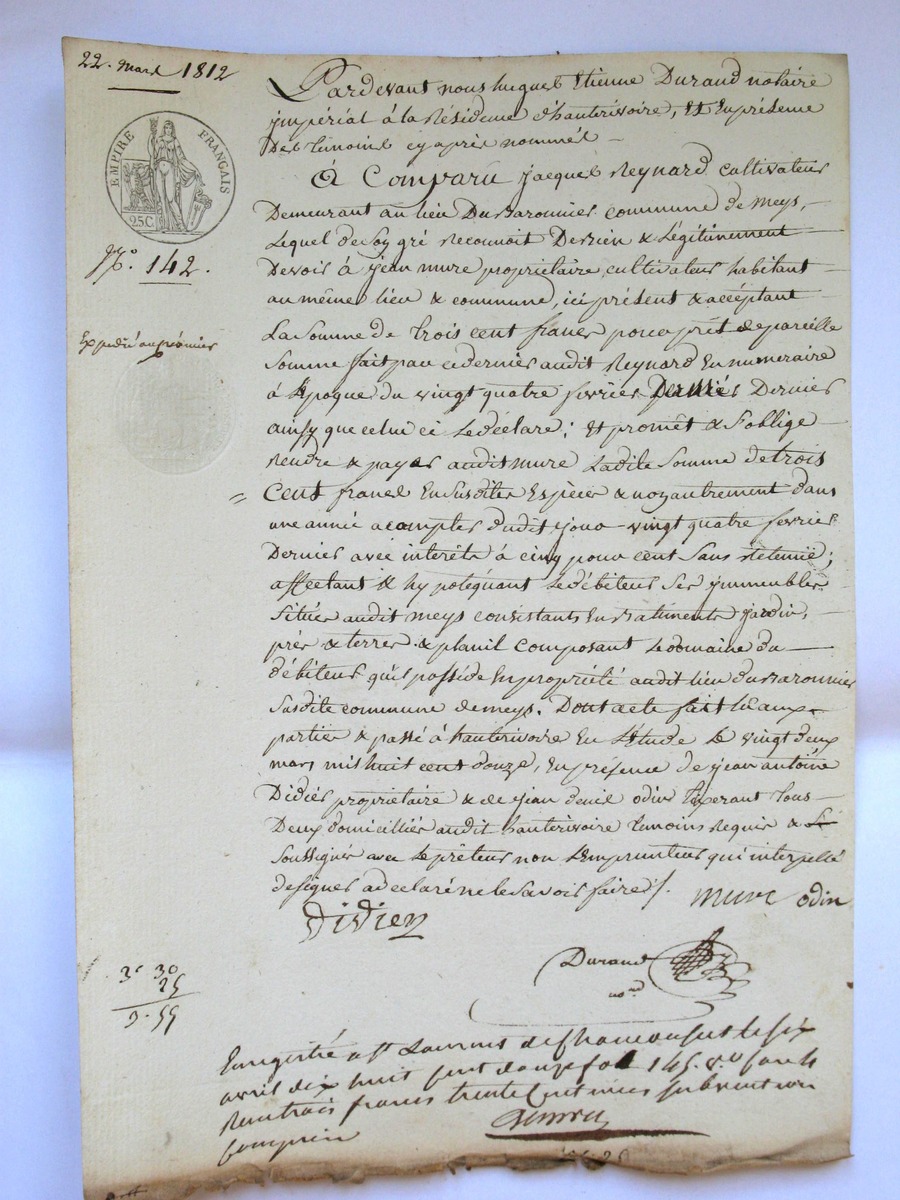 22. mars 1812
EMPIRE FRANÇAIS
25C
N.° 142.
Expédié au prémier
Pardevant nous hugues Etienne Durand notaire
jmpérial à la Résidence d'hauterivoire, et En présence
Des témoins cy après nommés —
A Comparu jacques Reynard cultivateur
Demeurant au lieu Du Baronnier commune de meys,
Lequel de Soy gré reconnoit Devoir & Légitimement
Devoir à jean mure propriétaire cultivateur habitant
au même lieu & commune, ici présent & accéptant
La Somme de trois cent francs pour prêt de pareille
Somme fait par ce dernier audit Reynard En numeraire
à l'Epoque du vingt quatre fevrier Dernier
ainsy que celui ci le déclare; Et promêt & S'oblige
rendre & payer audit mure Ladite Somme de trois
= cent francs En Susdites Espèces & non autrement dans
une année acompter dudit jour vingt quatre fevrier
Dernier avec interêts à cinq pour cent Sans retenüe;
affectant & hypotequant le débiteur Ses jmmeubles
Situés audit meys consistants En Batiments jardin,
près & terres. & planil composant le domaine du
débiteur qu'il posséde En propriété audit lieu du Baronnier
Susdite commune de meys. Dont acte fait lu aux
parties & passé à hauterivoire En l'Etude Le vingt deux
mars mil huit cent douze, En présence de jean antoine
Didier propriétaire & de jean denis odin tisserant tous
Deux domicilliés audit hauterivoire témoins Requis &
Soussignés avec le prêteur non l'Emprunteur qui interpellé
de signer a declaré ne le Savoir faire /.
mure odin
Didier
Durand
no.re
3. 30
25
3. 55
Enregistré à St Laurens de Chamousset le six
avril dix huit cent douze fol 145. v.o
trois francs trente Centimes subvention
comprise